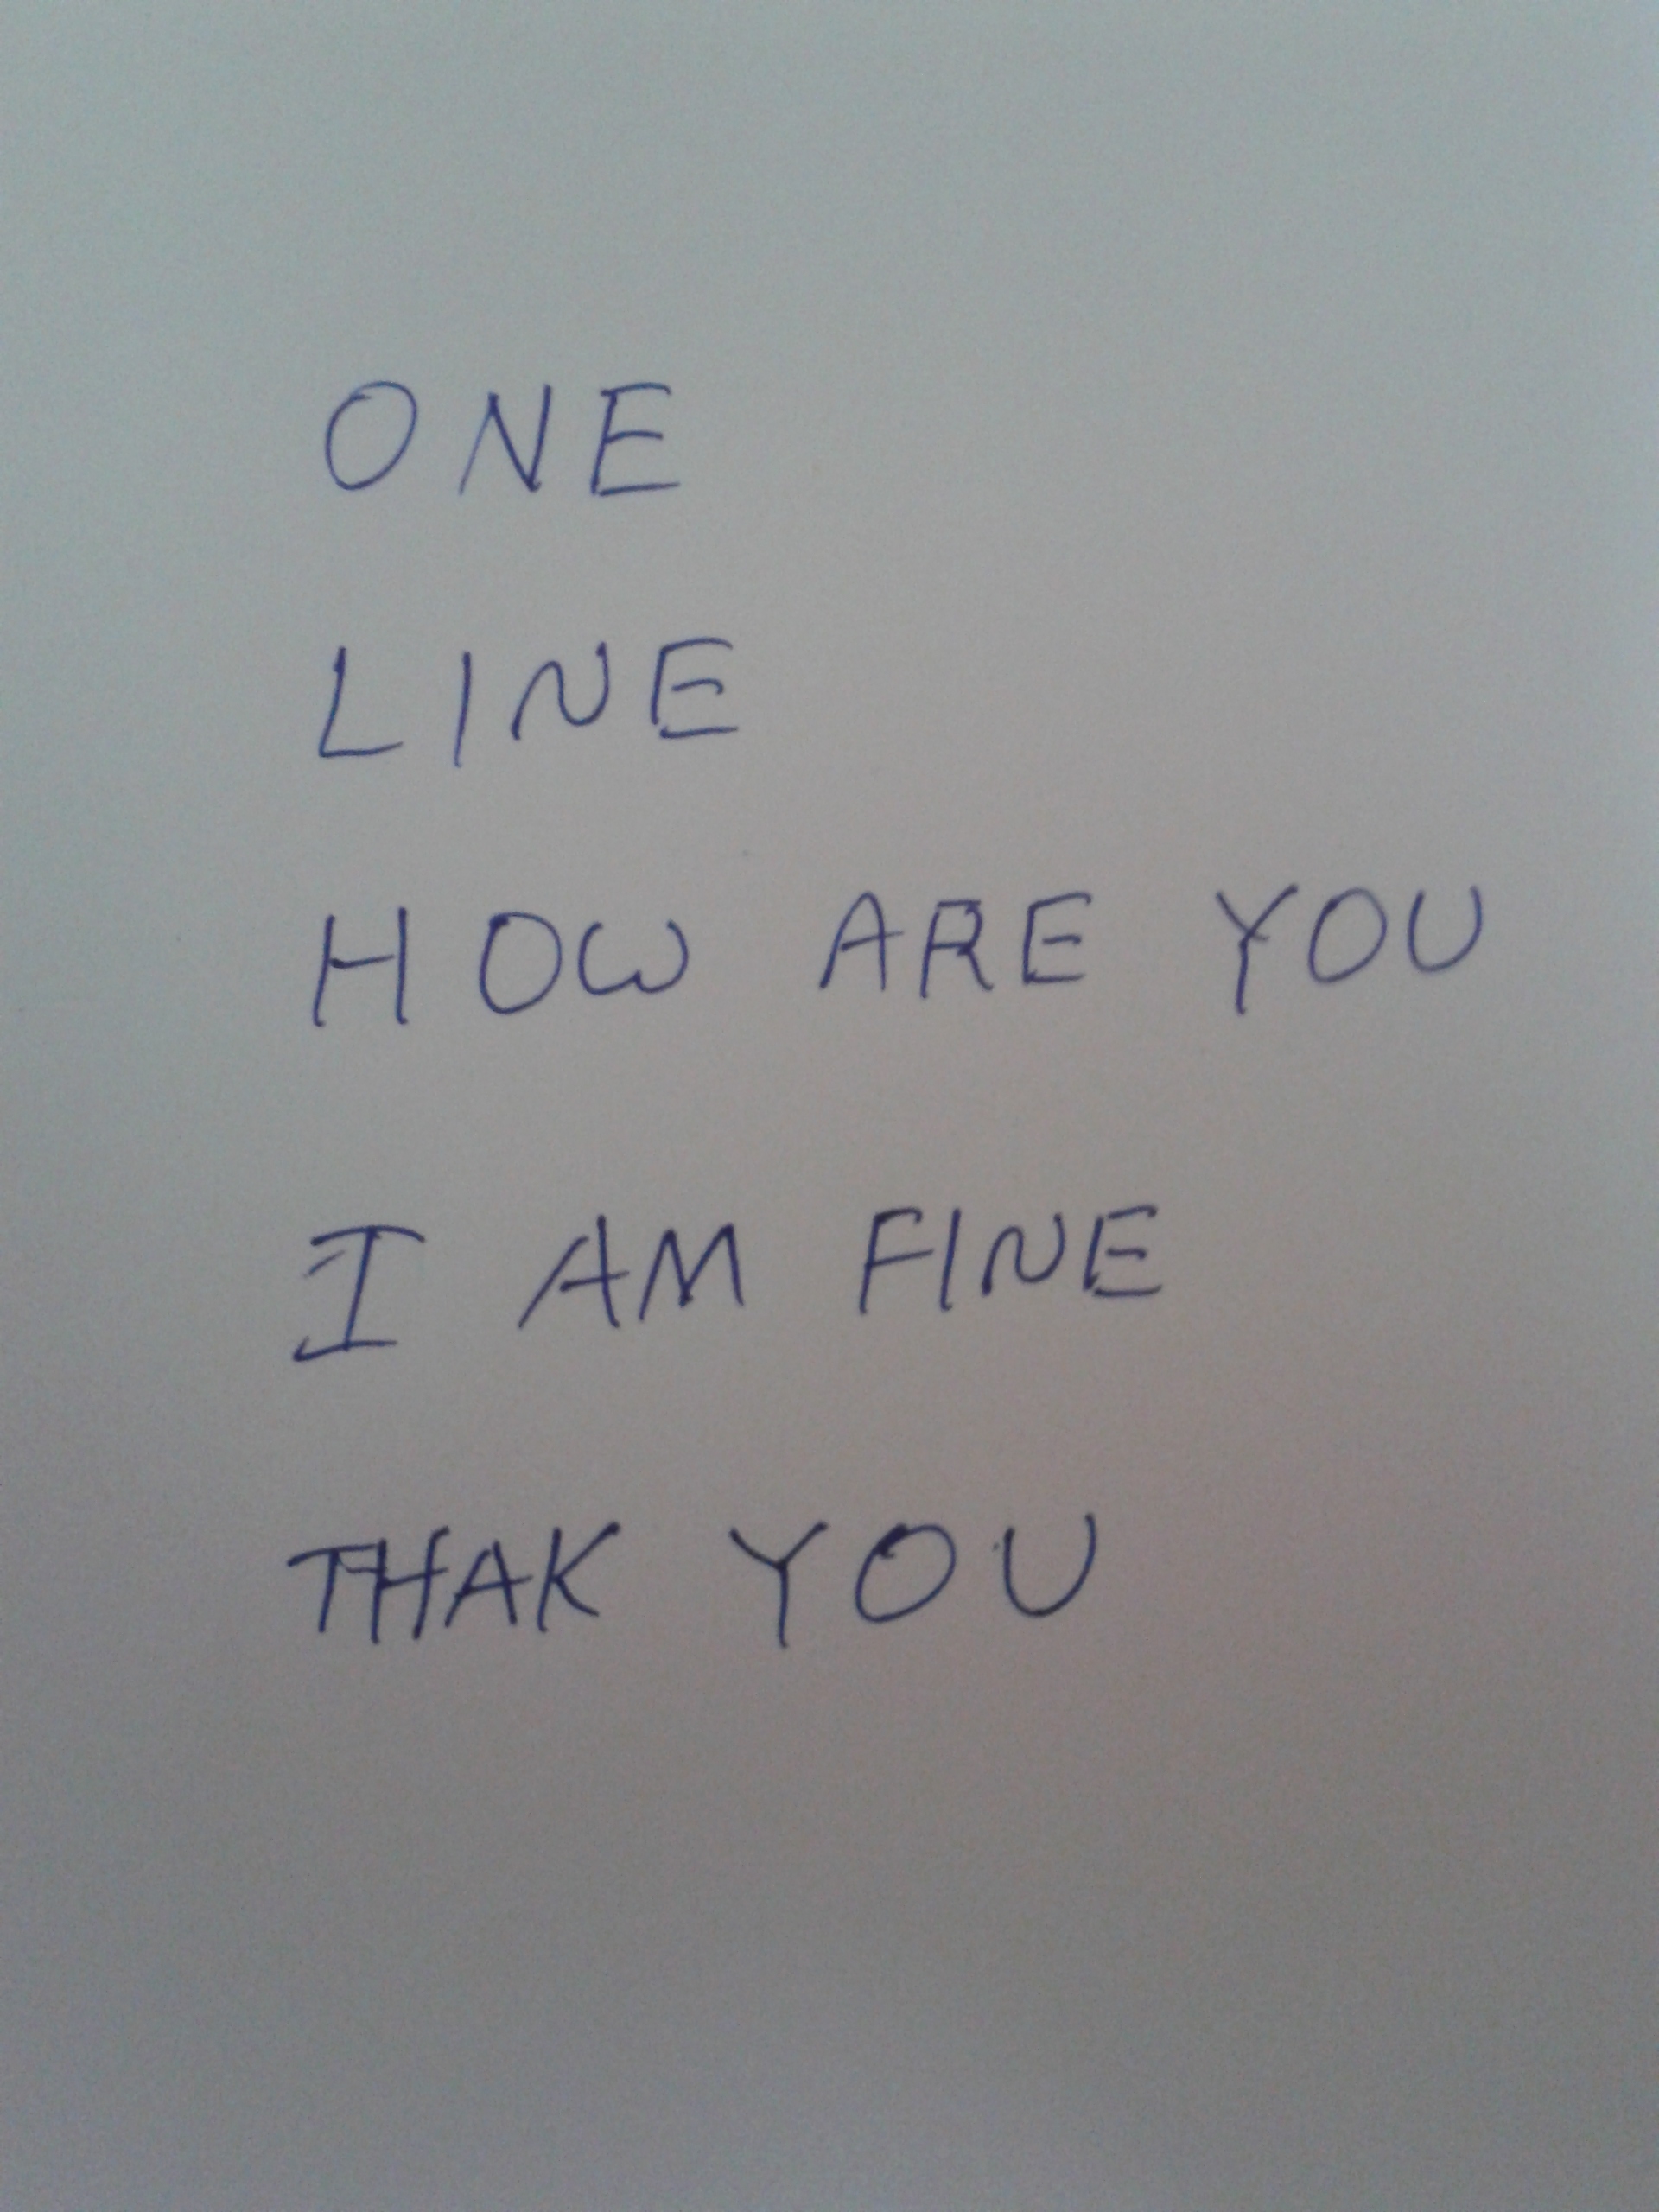 ONE
LINE
HOW ARE YOU
I AM FINE
THAK YOU